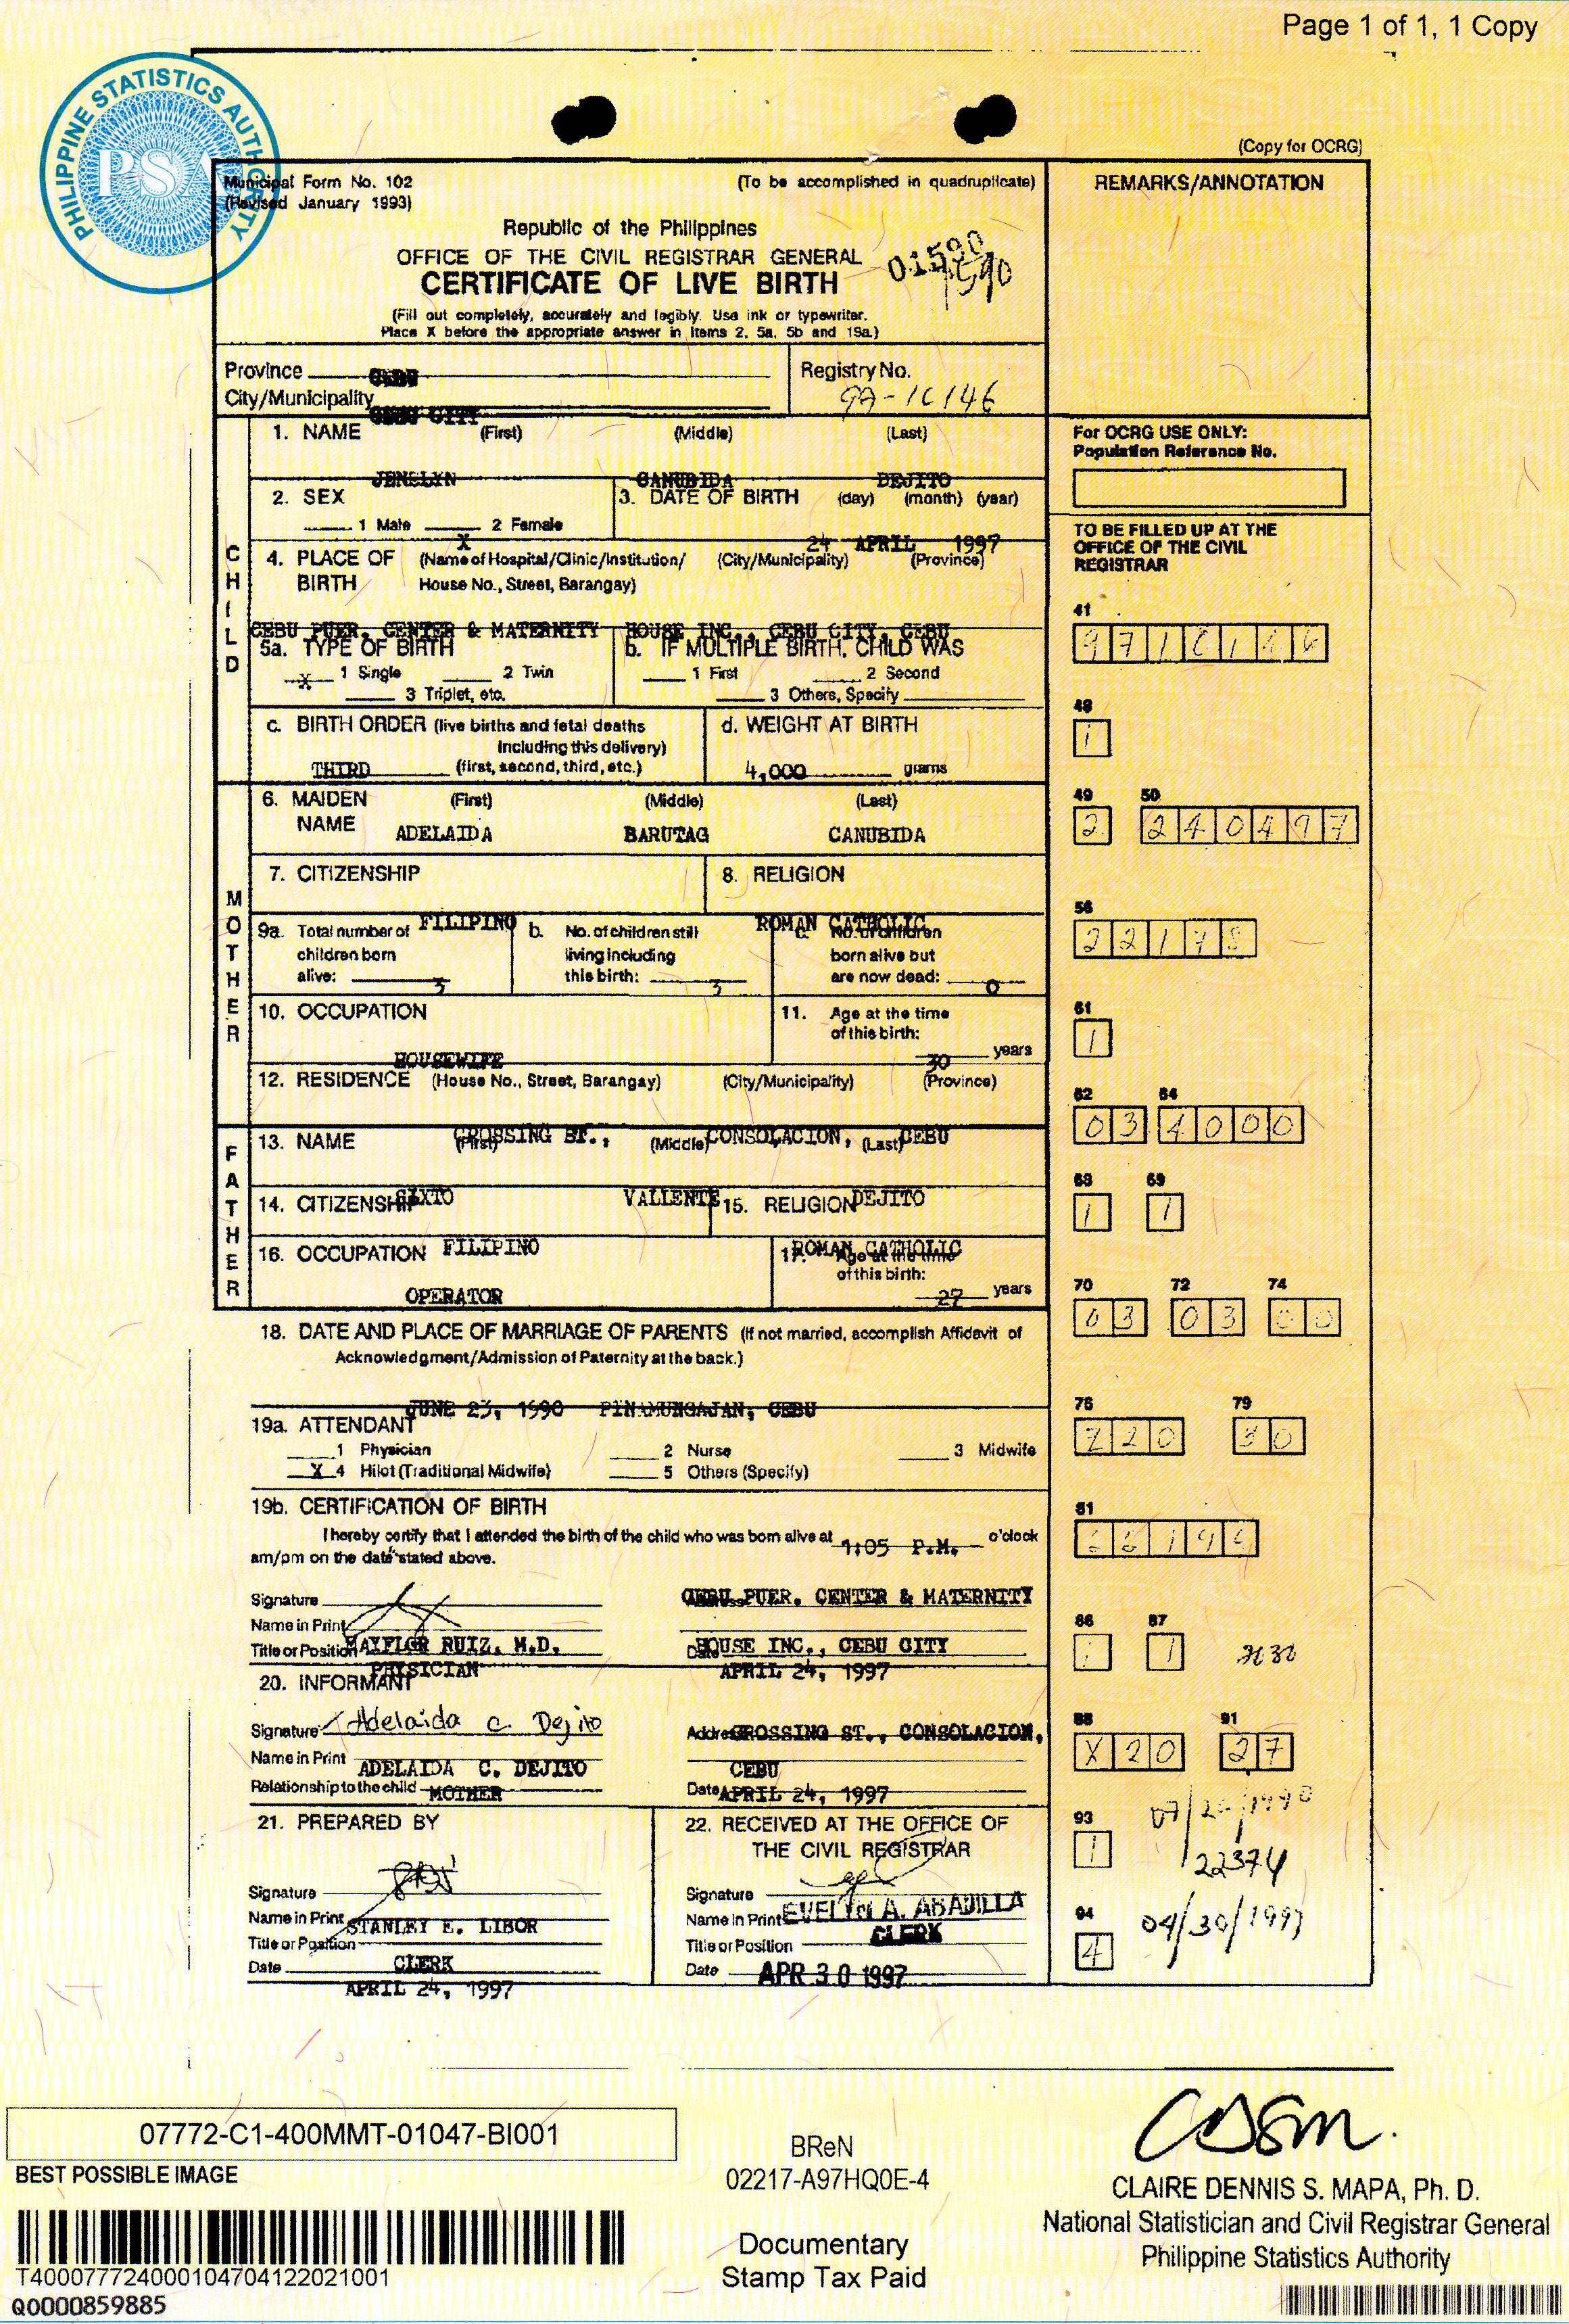 Page 1 of 1, 1 Copy
PHILIPPINE STATISTICS AUTHORITY
PSA
(Copy for OCRG)
Municipal Form No. 102
(To be accomplished in quadruplicate)
(Revised January 1993)
Republic of the Philippines
OFFICE OF THE CIVIL REGISTRAR GENERAL
CERTIFICATE OF LIVE BIRTH
01590
1590
(Fill out completely, accurately and legibly. Use ink or typewriter.
Place X before the appropriate answer in Items 2, 5a, 5b and 19a.)
REMARKS/ANNOTATION
Province CEBU
City/Municipality CEBU CITY
Registry No.
97-10146
CHILD
1. NAME (First) (Middle) (Last)
JENELYN CANUBIDA DEJITO
2. SEX
1 Male X 2 Female
3. DATE OF BIRTH (day) (month) (year)
24 APRIL 1997
4. PLACE OF BIRTH (Name of Hospital/Clinic/Institution/ (City/Municipality) (Province)
House No., Street, Barangay)
CEBU PUER. CENTER & MATERNITY HOUSE INC., CEBU CITY, CEBU
5a. TYPE OF BIRTH
X 1 Single 2 Twin
3 Triplet, etc.
b. IF MULTIPLE BIRTH, CHILD WAS
1 First 2 Second
3 Others, Specify
c. BIRTH ORDER (live births and fetal deaths
including this delivery)
THIRD (first, second, third, etc.)
d. WEIGHT AT BIRTH
4,000 grams
MOTHER
6. MAIDEN NAME (First) (Middle) (Last)
ADELAIDA BARUTAG CANUBIDA
7. CITIZENSHIP
FILIPINO
8. RELIGION
ROMAN CATHOLIC
9a. Total number of
children born
alive: 3
b. No. of children still
living including
this birth: 3
c. No. of children
born alive but
are now dead: 0
10. OCCUPATION
HOUSEWIFE
11. Age at the time
of this birth:
30 years
12. RESIDENCE (House No., Street, Barangay) (City/Municipality) (Province)
CROSSING ST., CONSOLACION, CEBU
FATHER
13. NAME (First) (Middle) (Last)
SIXTO VALIENTE DEJITO
14. CITIZENSHIP
FILIPINO
15. RELIGION
ROMAN CATHOLIC
16. OCCUPATION
OPERATOR
17. Age at the time
of this birth:
27 years
18. DATE AND PLACE OF MARRIAGE OF PARENTS (If not married, accomplish Affidavit of
Acknowledgment/Admission of Paternity at the back.)
JUNE 23, 1990 PINAMUNGAJAN, CEBU
19a. ATTENDANT
1 Physician 2 Nurse 3 Midwife
X 4 Hilot (Traditional Midwife) 5 Others (Specify)
19b. CERTIFICATION OF BIRTH
I hereby certify that I attended the birth of the child who was born alive at 1:05 P.M. o'clock
am/pm on the date stated above.
Signature
Name in Print MAYFLOR RUIZ, M.D.
Title or Position PHYSICIAN
CEBU PUER. CENTER & MATERNITY
HOUSE INC., CEBU CITY
Date APRIL 24, 1997
20. INFORMANT
Signature Adelaida C. Dejito
Name in Print ADELAIDA C. DEJITO
Relationship to the child MOTHER
Address CROSSING ST., CONSOLACION,
CEBU
Date APRIL 24, 1997
21. PREPARED BY
Signature
Name in Print STANLEY E. LIBOR
Title or Position CLERK
Date APRIL 24, 1997
22. RECEIVED AT THE OFFICE OF
THE CIVIL REGISTRAR
Signature
Name in Print EVELYN A. ABADILLA
Title or Position CLERK
Date APR 30 1997
For OCRG USE ONLY:
Population Reference No.
TO BE FILLED UP AT THE
OFFICE OF THE CIVIL
REGISTRAR
41
9710146
48
1
49 50
2 240497
56
22178
61
1
62 64
03 4000
68 69
1 1
70 72 74
03 03 00
76 79
220 30
81
86 87
1
88 91
X20 27
93
1
22374
94
4
04/30/1997
07772-C1-400MMT-01047-BI001
BEST POSSIBLE IMAGE
T400077724000104704122021001
Q0000859885
BReN
02217-A97HQ0E-4
Documentary
Stamp Tax Paid
CLAIRE DENNIS S. MAPA, Ph. D.
National Statistician and Civil Registrar General
Philippine Statistics Authority